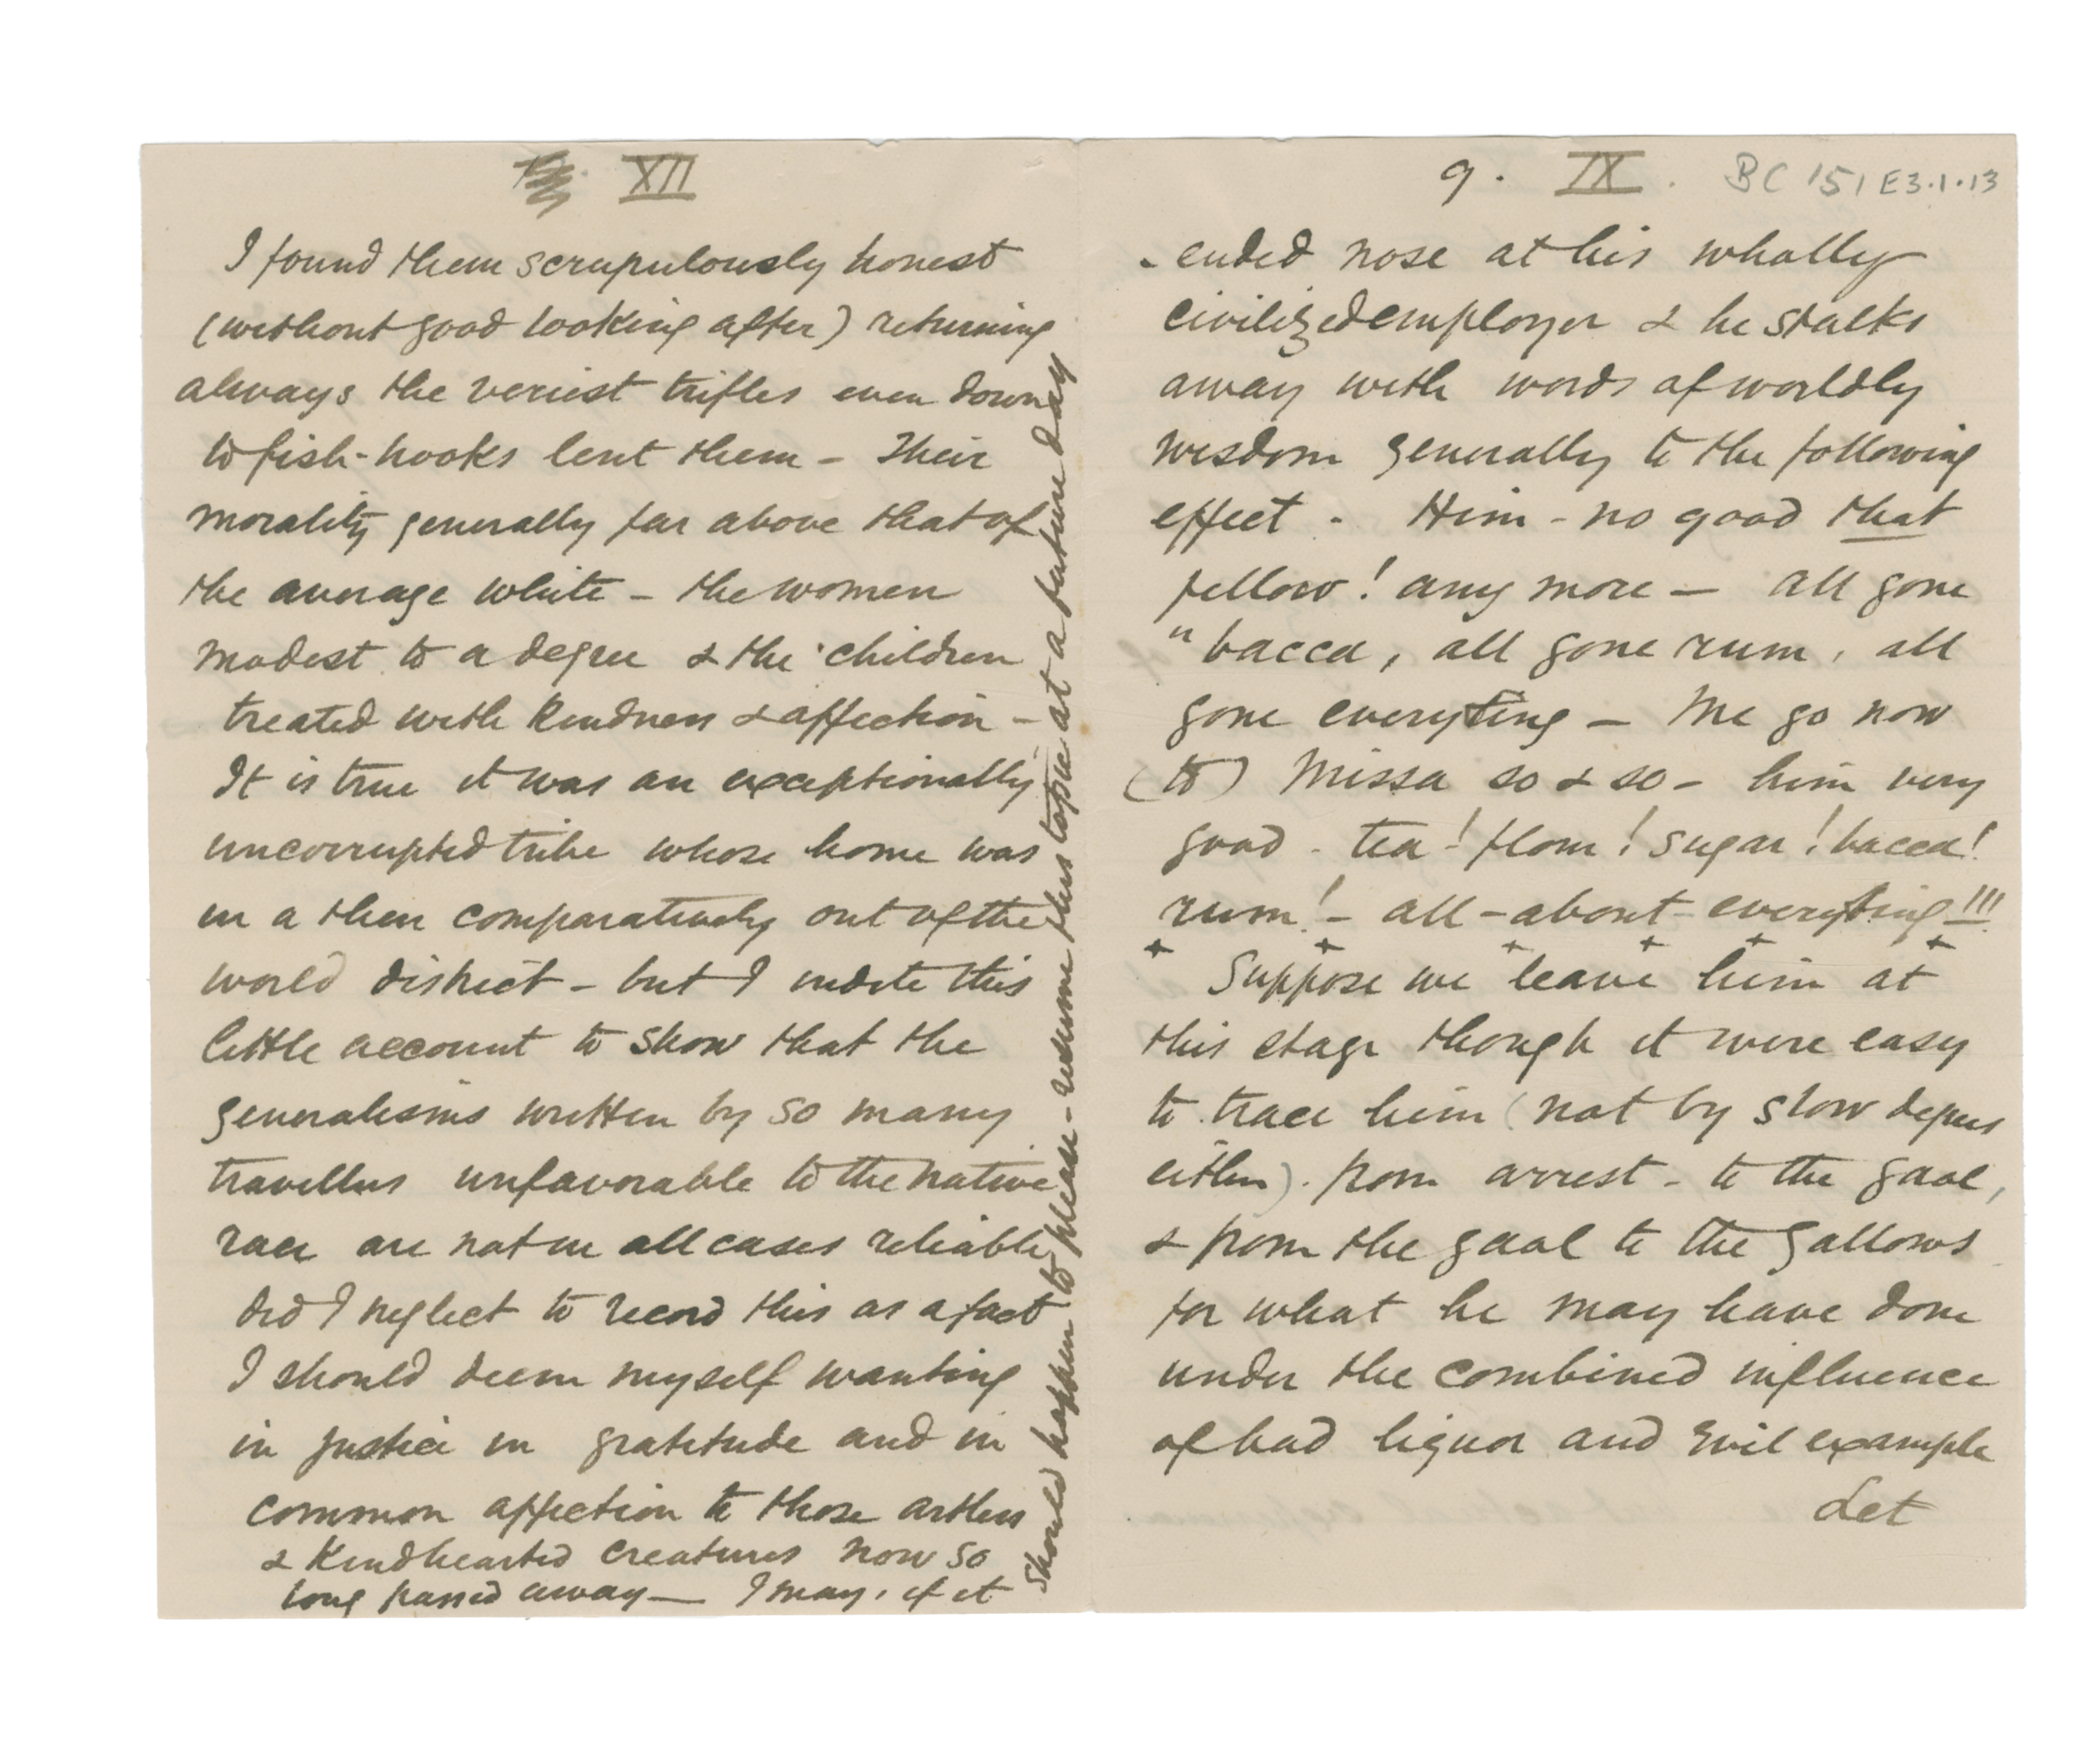 XII
I found them scrupulously honest
(without good looking after) returning
always the veriest trifles even down
to fish-hooks lent them - Their
morality generally far above that of
the average white - the women
modest to a degree & the children
treated with kindness & affection -
It is true it was an exceptionally
uncorrupted tribe whose home was
in a then comparatively out of the
world district - but I indite this
little account to show that the
generalisms written by so many
travellers unfavorable to the native
race are not in all cases reliable
did I neglect to record this as a fact
I should deem myself wanting
in justice in gratitude and in
common affection to those artless
& Kindhearted creatures now so
long passed away — I may, if it
should happen to please - resume this topic at a future day
9. IX. BC 151 E3.1.13
-ended nose at his wholly
civilized employer & he stalks
away with words of worldly
wisdom generally to the following
effect - Him - no good that
fellow! any more — all gone
"bacca, all gone rum, all
gone everyting — Me go now
(to) Missa so & so - him very
good - tea! flour! sugar! bacca!
rum! - all-about-everyting!!!
+ + + + + +
Suppose we leave him at
this stage though it were easy
to trace him (not by slow degrees
either). from arrest - to the gaol,
& from the gaol to the gallows
for what he may have done
under the combined influence
of bad liquor and evil example
Let